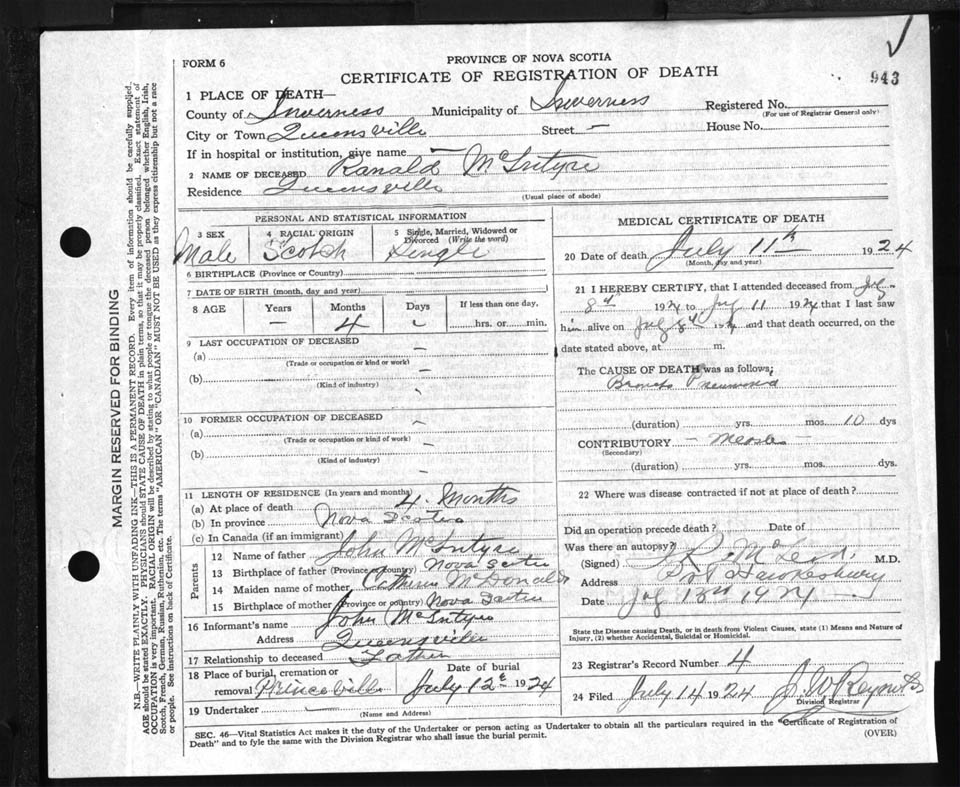 FORM 6
PROVINCE OF NOVA SCOTIA
CERTIFICATE OF REGISTRATION OF DEATH
943
1 PLACE OF DEATH—
County of Inverness Municipality of Inverness Registered No.
(For use of Registrar General only)
City or Town Queensville Street — House No.
If in hospital or institution, give name —
2 NAME OF DECEASED Ranald McIntyre
Residence Queensville
(Usual place of abode)
PERSONAL AND STATISTICAL INFORMATION
3 SEX 4 RACIAL ORIGIN 5 Single, Married, Widowed or Divorced (Write the word)
Male Scotch Single
6 BIRTHPLACE (Province or Country)
7 DATE OF BIRTH (month, day and year)
8 AGE Years Months Days If less than one day,
— 4 hrs. or min.
9 LAST OCCUPATION OF DECEASED
(a)
(Trade or occupation or kind or work)
(b)
(Kind of industry)
10 FORMER OCCUPATION OF DECEASED
(a)
(Trade or occupation or kind of work)
(b)
(Kind of industry)
11 LENGTH OF RESIDENCE (In years and months)
(a) At place of death 4 Months
(b) In province Nova Scotia
(c) In Canada (if an immigrant)
Parents
12 Name of father John McIntyre
13 Birthplace of father (Province or country) Nova Scotia
14 Maiden name of mother Catherine McDonald
15 Birthplace of mother (Province or country) Nova Scotia
16 Informant's name John McIntyre
Address Queensville
17 Relationship to deceased Father
18 Place of burial, cremation or removal Princeville Date of burial July 12 1924
19 Undertaker
(Name and Address)
MEDICAL CERTIFICATE OF DEATH
20 Date of death July 11th 1924
(Month, day and year)
21 I HEREBY CERTIFY, that I attended deceased from July
8th 1924 to July 11 1924 that I last saw
him alive on July 8th 1924 and that death occurred, on the
date stated above, at m.
The CAUSE OF DEATH was as follows:
Broncho Pneumonia
(duration) yrs. mos. 10 dys
CONTRIBUTORY — Measles —
(Secondary)
(duration) yrs. mos. dys.
22 Where was disease contracted if not at place of death?
Did an operation precede death? Date of
Was there an autopsy?
(Signed) McLeod M.D.
Address Port Hawkesbury
Date July 13th 1924
State the Disease causing Death, or in death from Violent Causes, state (1) Means and Nature of Injury, (2) whether Accidental, Suicidal or Homicidal.
23 Registrar's Record Number 4
24 Filed July 14 1924 J. W. Reynolds
Division Registrar
SEC. 46—Vital Statistics Act makes it the duty of the Undertaker or person acting as Undertaker to obtain all the particulars required in the "Certificate of Registration of
Death" and to fyle the same with the Division Registrar who shall issue the burial permit.
(OVER)
MARGIN RESERVED FOR BINDING
N.B.—WRITE PLAINLY WITH UNFADING INK—THIS IS A PERMANENT RECORD. Every item of information should be carefully supplied.
AGE should be stated EXACTLY. PHYSICIANS should STATE CAUSE OF DEATH in plain terms, so that it may be properly classified. Exact statement of
OCCUPATION is very important. RACIAL ORIGIN will be described by stating to what people or tongue the deceased person belonged whether English, Irish,
Scotch, French, German, Russian, Ruthenian, etc. The terms "AMERICAN" OR "CANADIAN" MUST NOT BE USED as they express citizenship but not a race
or people. See instructions on back of Certificate.